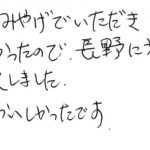 みやげでいただき
かったので、長野に
しました。
おいしかったです。